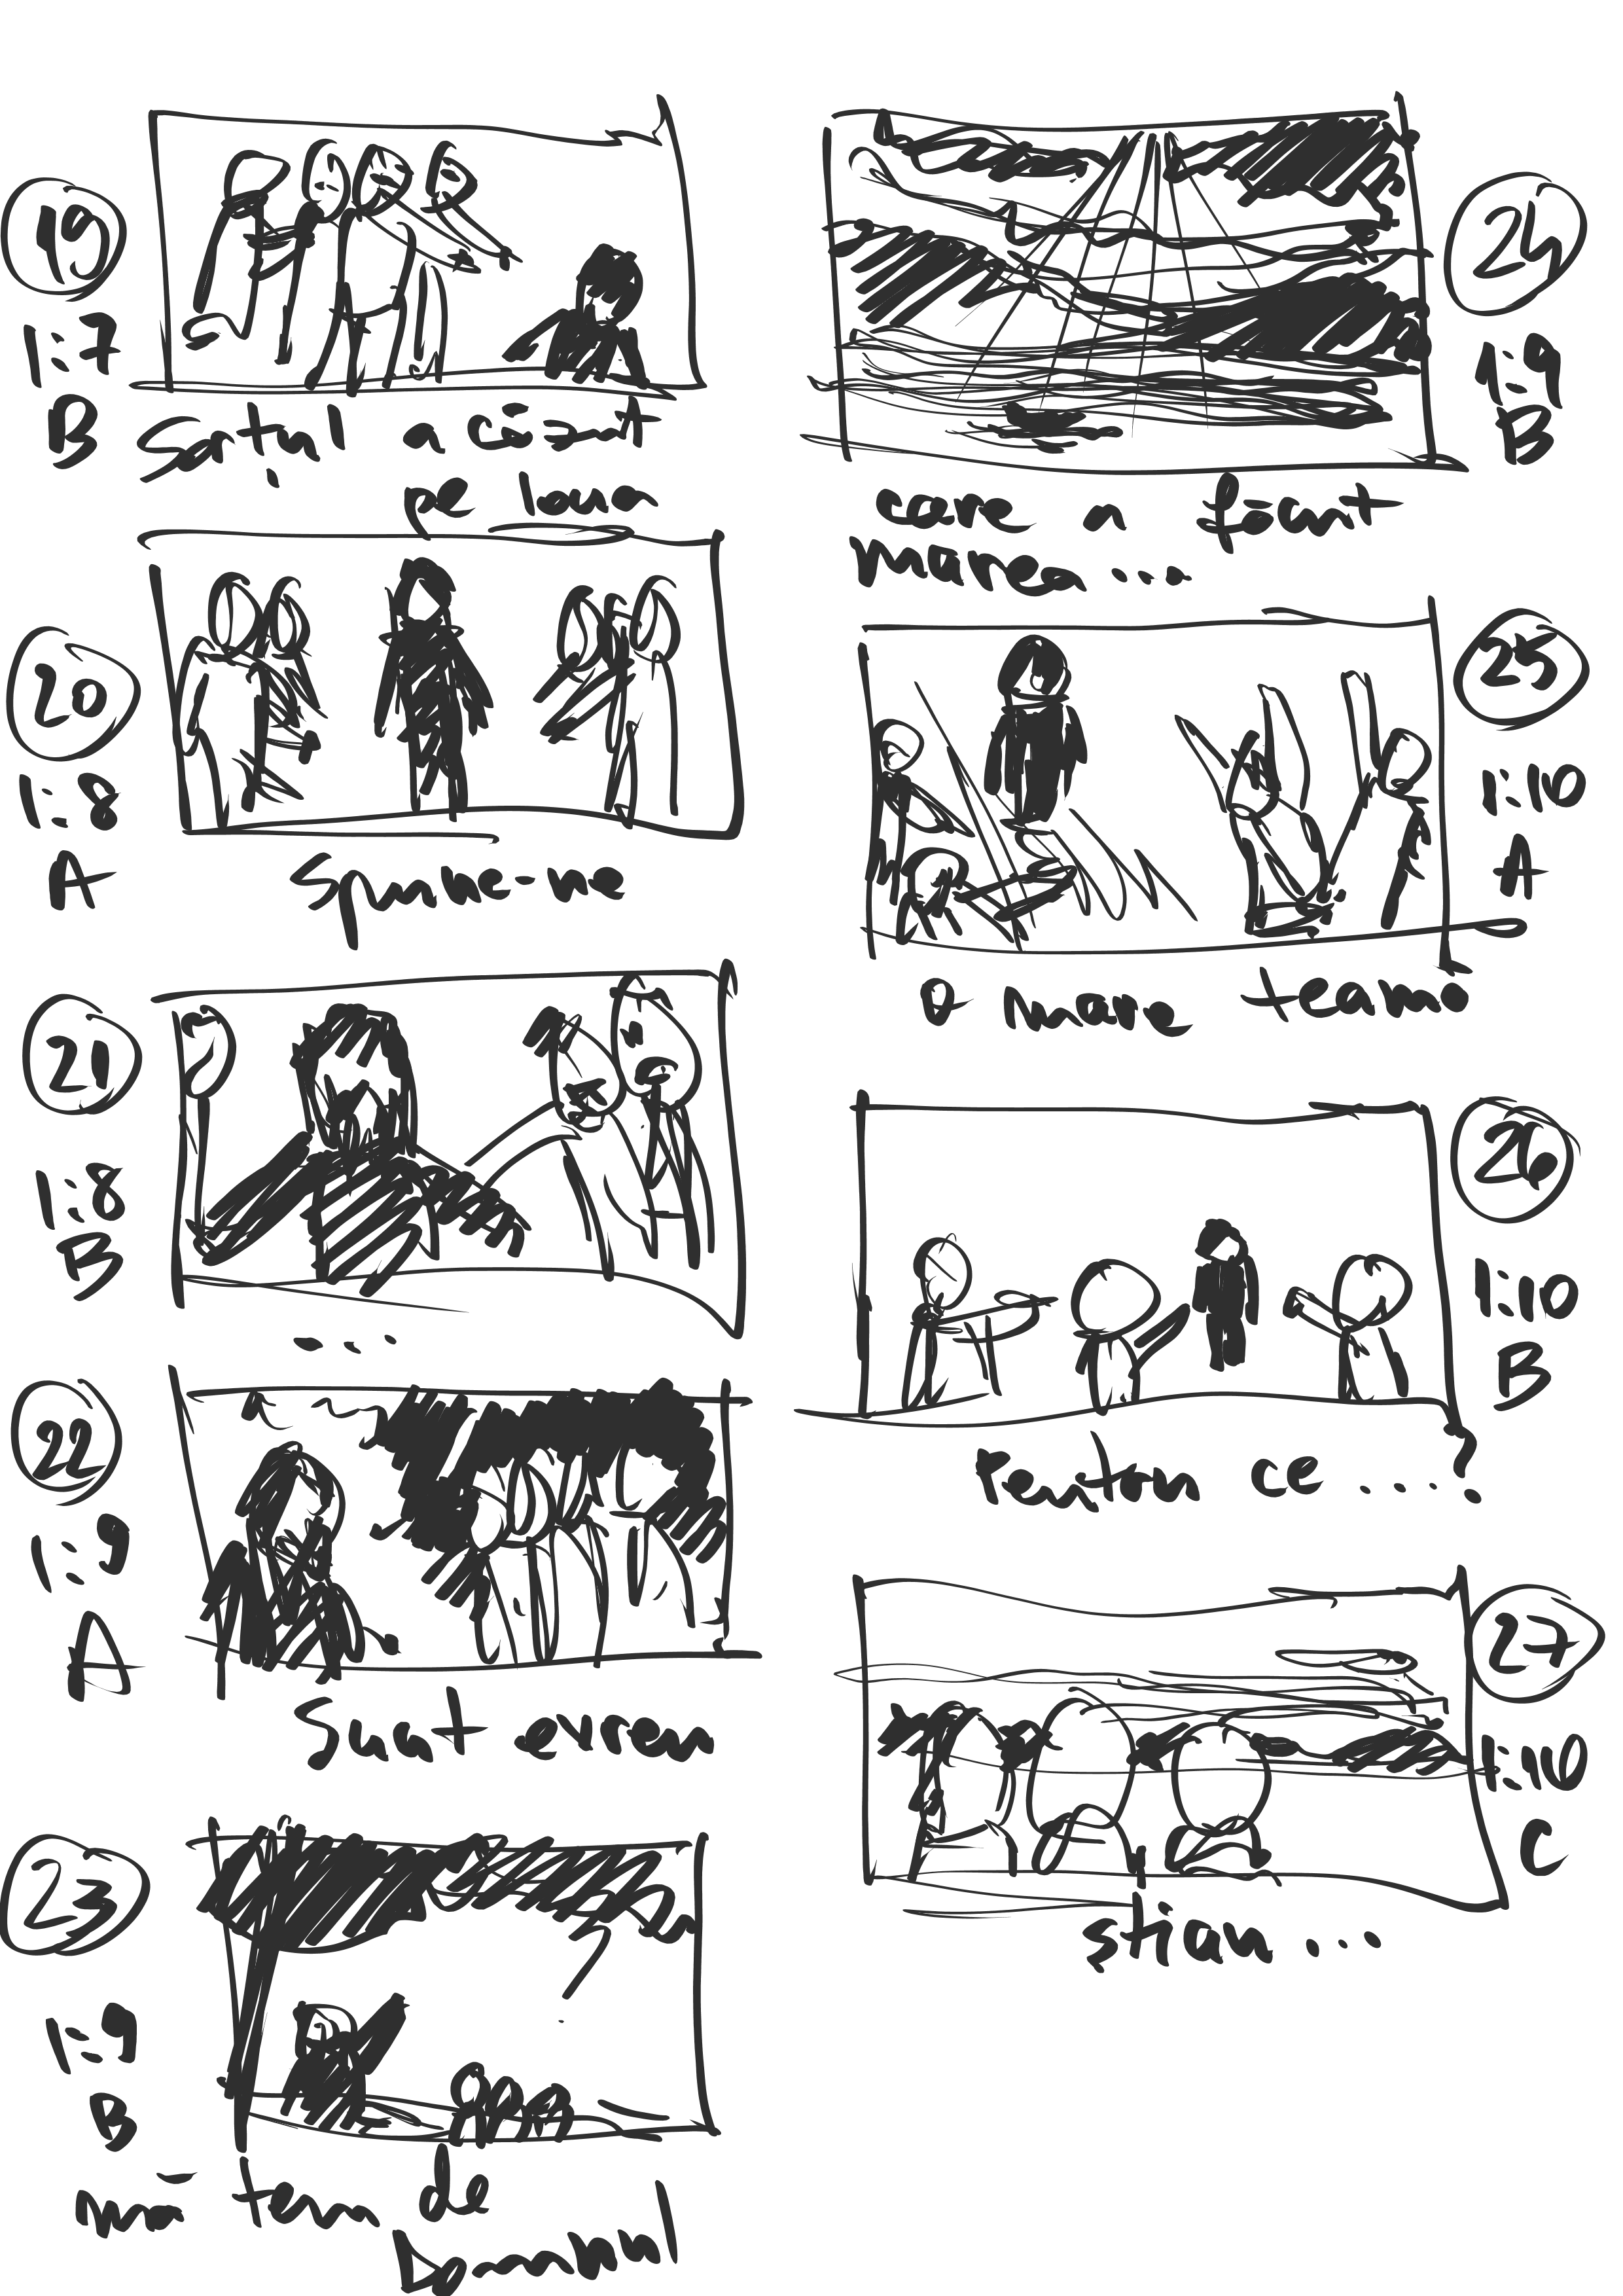 19
1:7
B
Sorțul a căzut
pe Iona
20
1:8
A
Spune-ne
21
1:8
B
...
22
1:9
A
Sunt evreu
23
1:9
B
mă tem de
Domnul
24
1:9
B
care a făcut
marea...
25
1:10
A
O mare teamă
26
1:10
B
Pentru ce....?
27
1:10
C
știau...